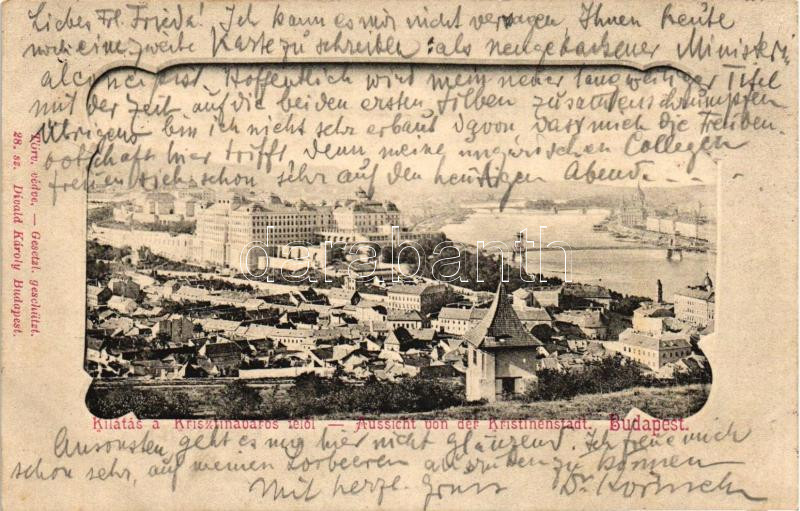 Liebes Frl. Frieda! Ich kann es mir nicht versagen, Ihnen heute
noch eine zweite Karte zu schreiben: als neugebackener Ministeri-
alconcipist. Hoffentlich wird mein neuer langweiliger Titel
mit der Zeit auf die beiden ersten Silben zusammenschrumpfen.
Übrigens bin ich nicht sehr erbaut davon, dass mich die Freuden-
botschaft hier trifft, denn meine ungarischen Collegen
freuen sich schon sehr auf den heutigen Abend.
Körv. védve. — Gesetzl. geschützt.
28. sz. Divald Károly Budapest.
darabanth.com
Kilátás a Krisztinaváros felöl — Aussicht von der Kristinenstadt. Budapest.
Ansonsten geht es mir hier nicht glänzend. Ich freue mich
schon sehr, auf meinen Lorbeeren zu können
Mit herzl. Gruss Dr.